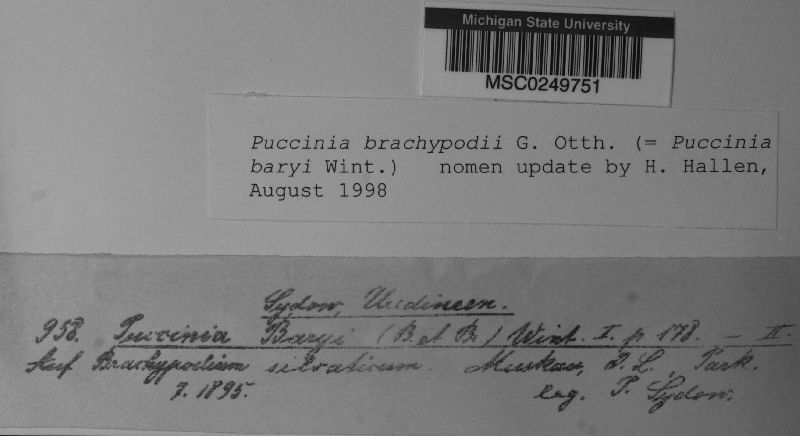 Michigan State University
MSC0249751
Puccinia brachypodii G. Otth. (= Puccinia
baryi Wint.) nomen update by H. Hallen,
August 1998
Sydow, Uredineen.
958. Puccinia Baryi (B. et Br.) Wint. I. p. 178. – II.
Auf Brachypodium silvaticum. Muskau, O. L., Park.
7. 1895. leg. P. Sydow.